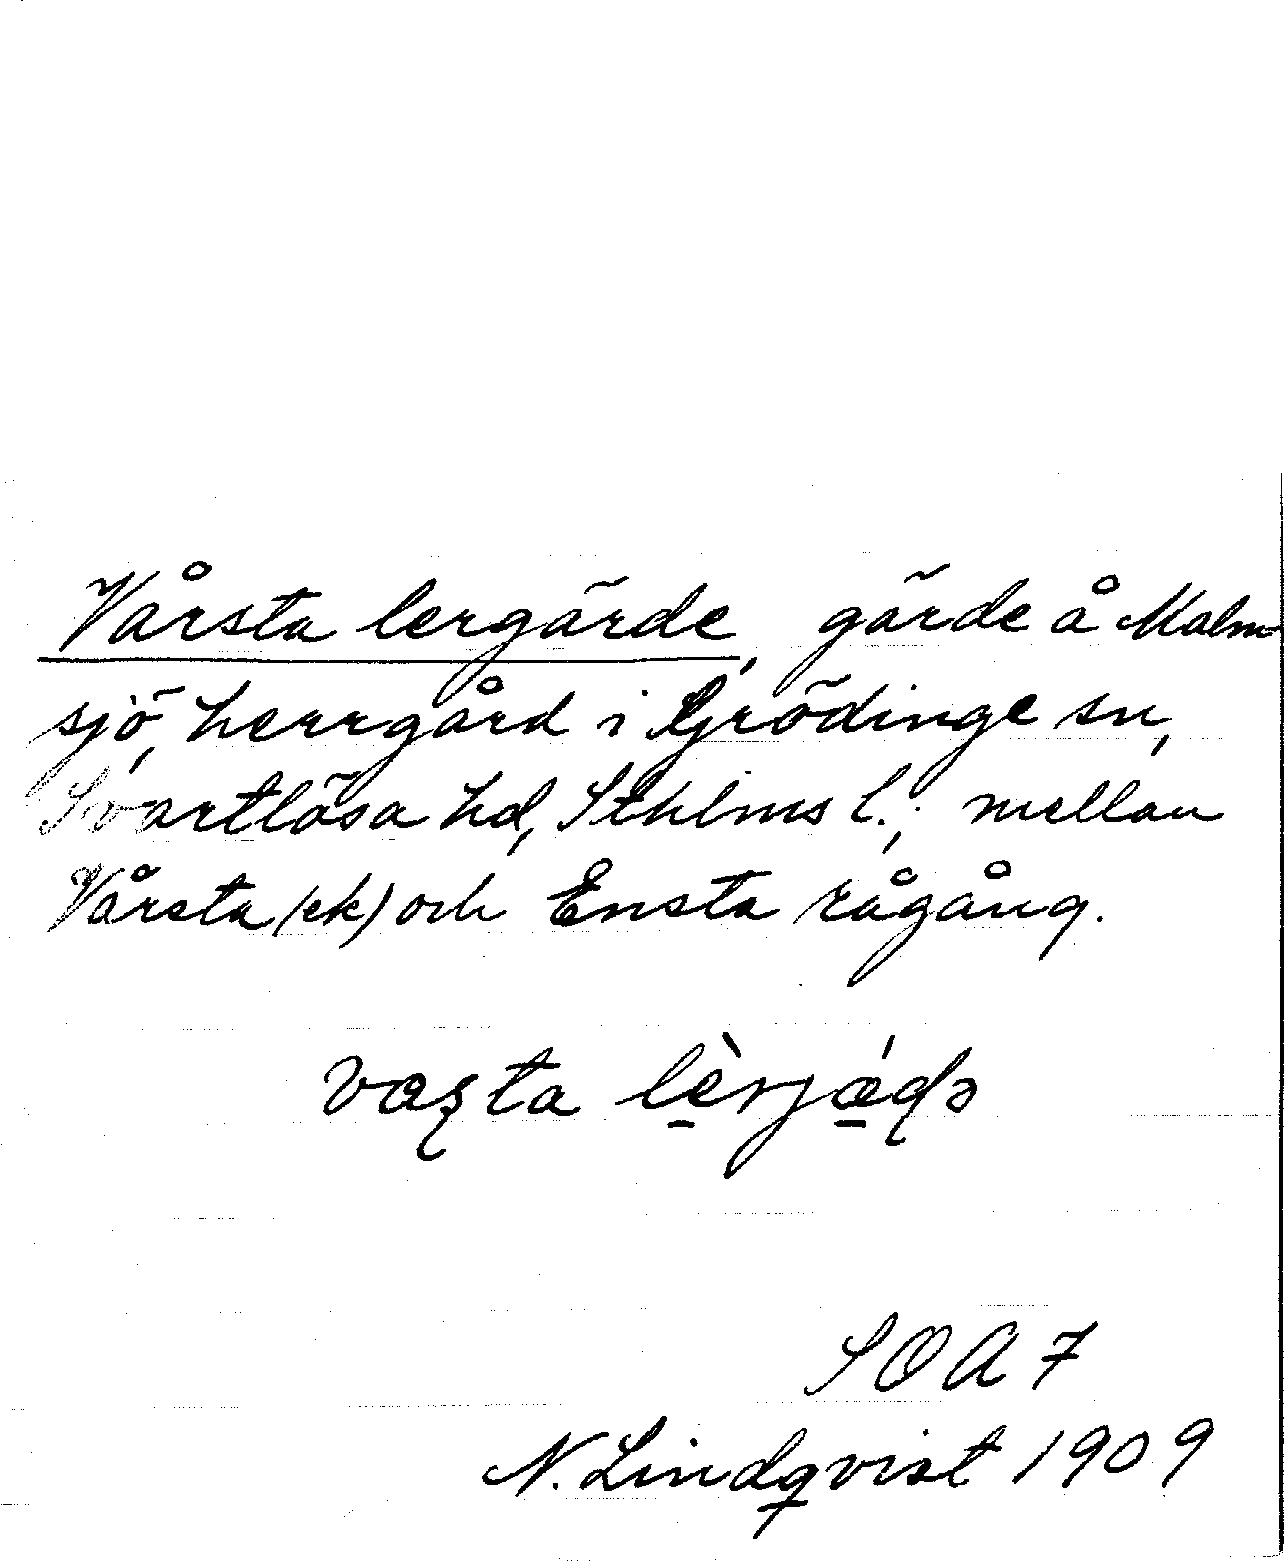 Vårsta lergärde, gärde å Malm-
sjö, herrgård i Grödinge sn,
Svartlösa hd, Sthlms l.; mellan
Vårsta (ek) och Ensta rågång.
SOA 7
N. Lindqvist 1909